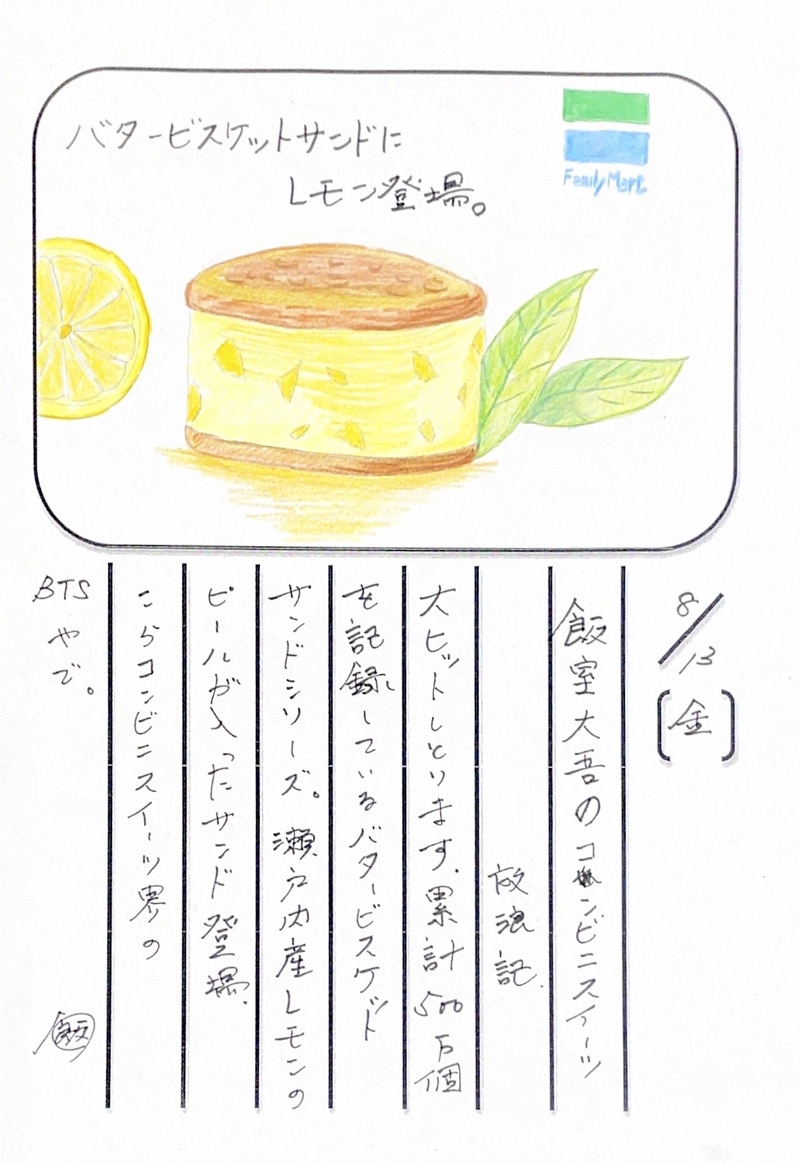 バタービスケットサンドに
レモン登場。
FamilyMart
8/13(金)
飯室大吾のコンビニスイーツ
放浪記.
大ヒットしとります.累計500万個
を記録しているバタービスケット
サンドシリーズ。瀬戸内産レモンの
ピールが入ったサンド登場.
こらコンビニスイーツ界の
BTSやで。
飯